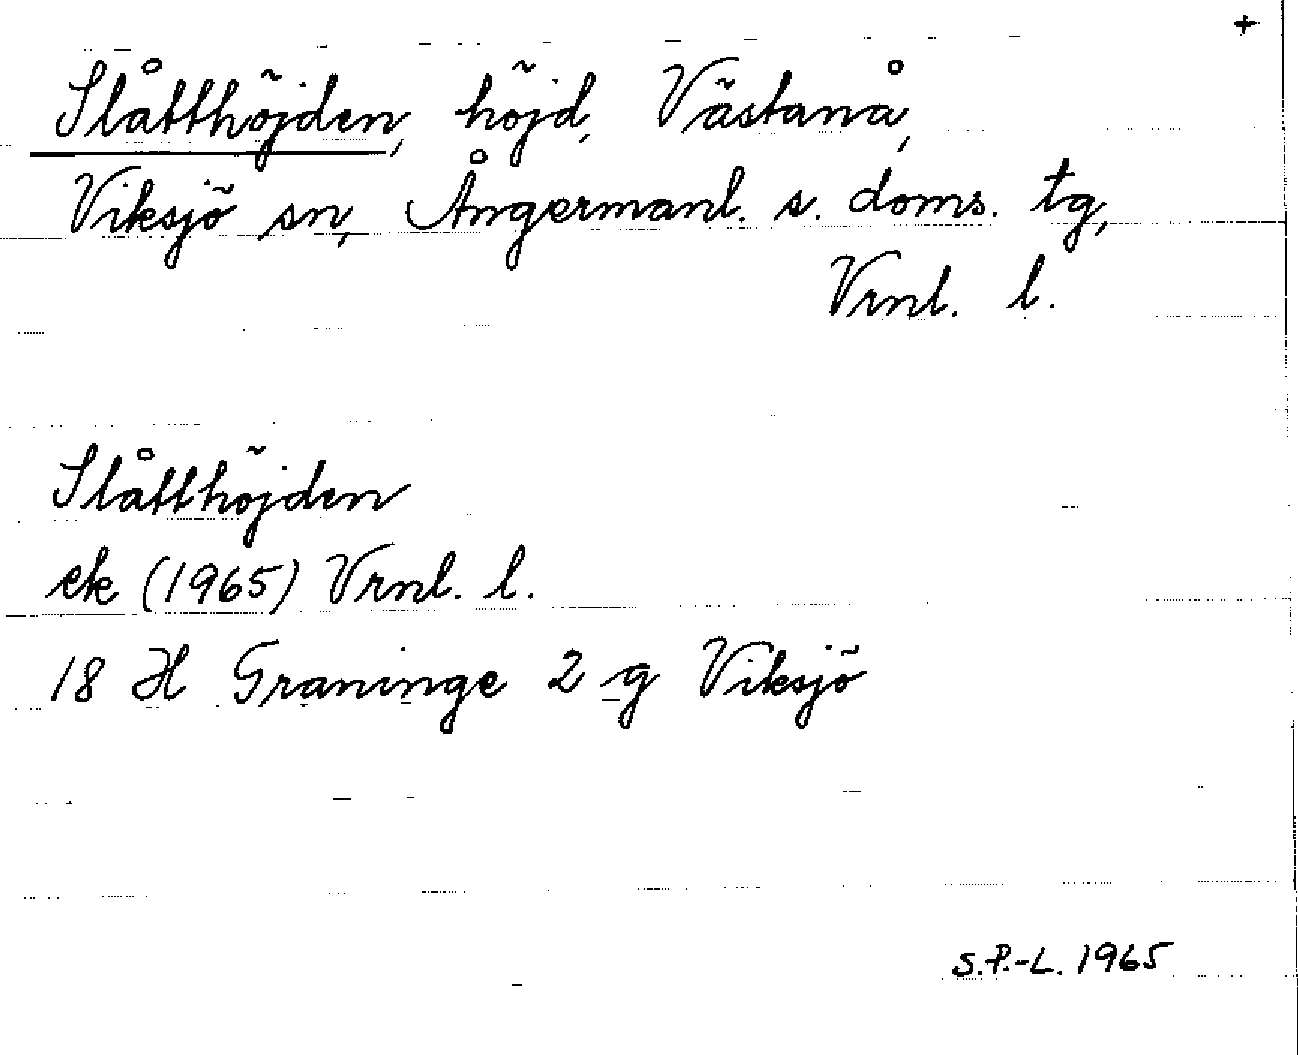 +
Slåtthöjden, höjd, Västanå,
Viksjö sn, Ångermanl. s. doms. tg,
Vrnl. l.
Slåtthöjden
ek (1965) Vrnl. l.
18 H Graninge 2 g Viksjö
S.P.-L. 1965